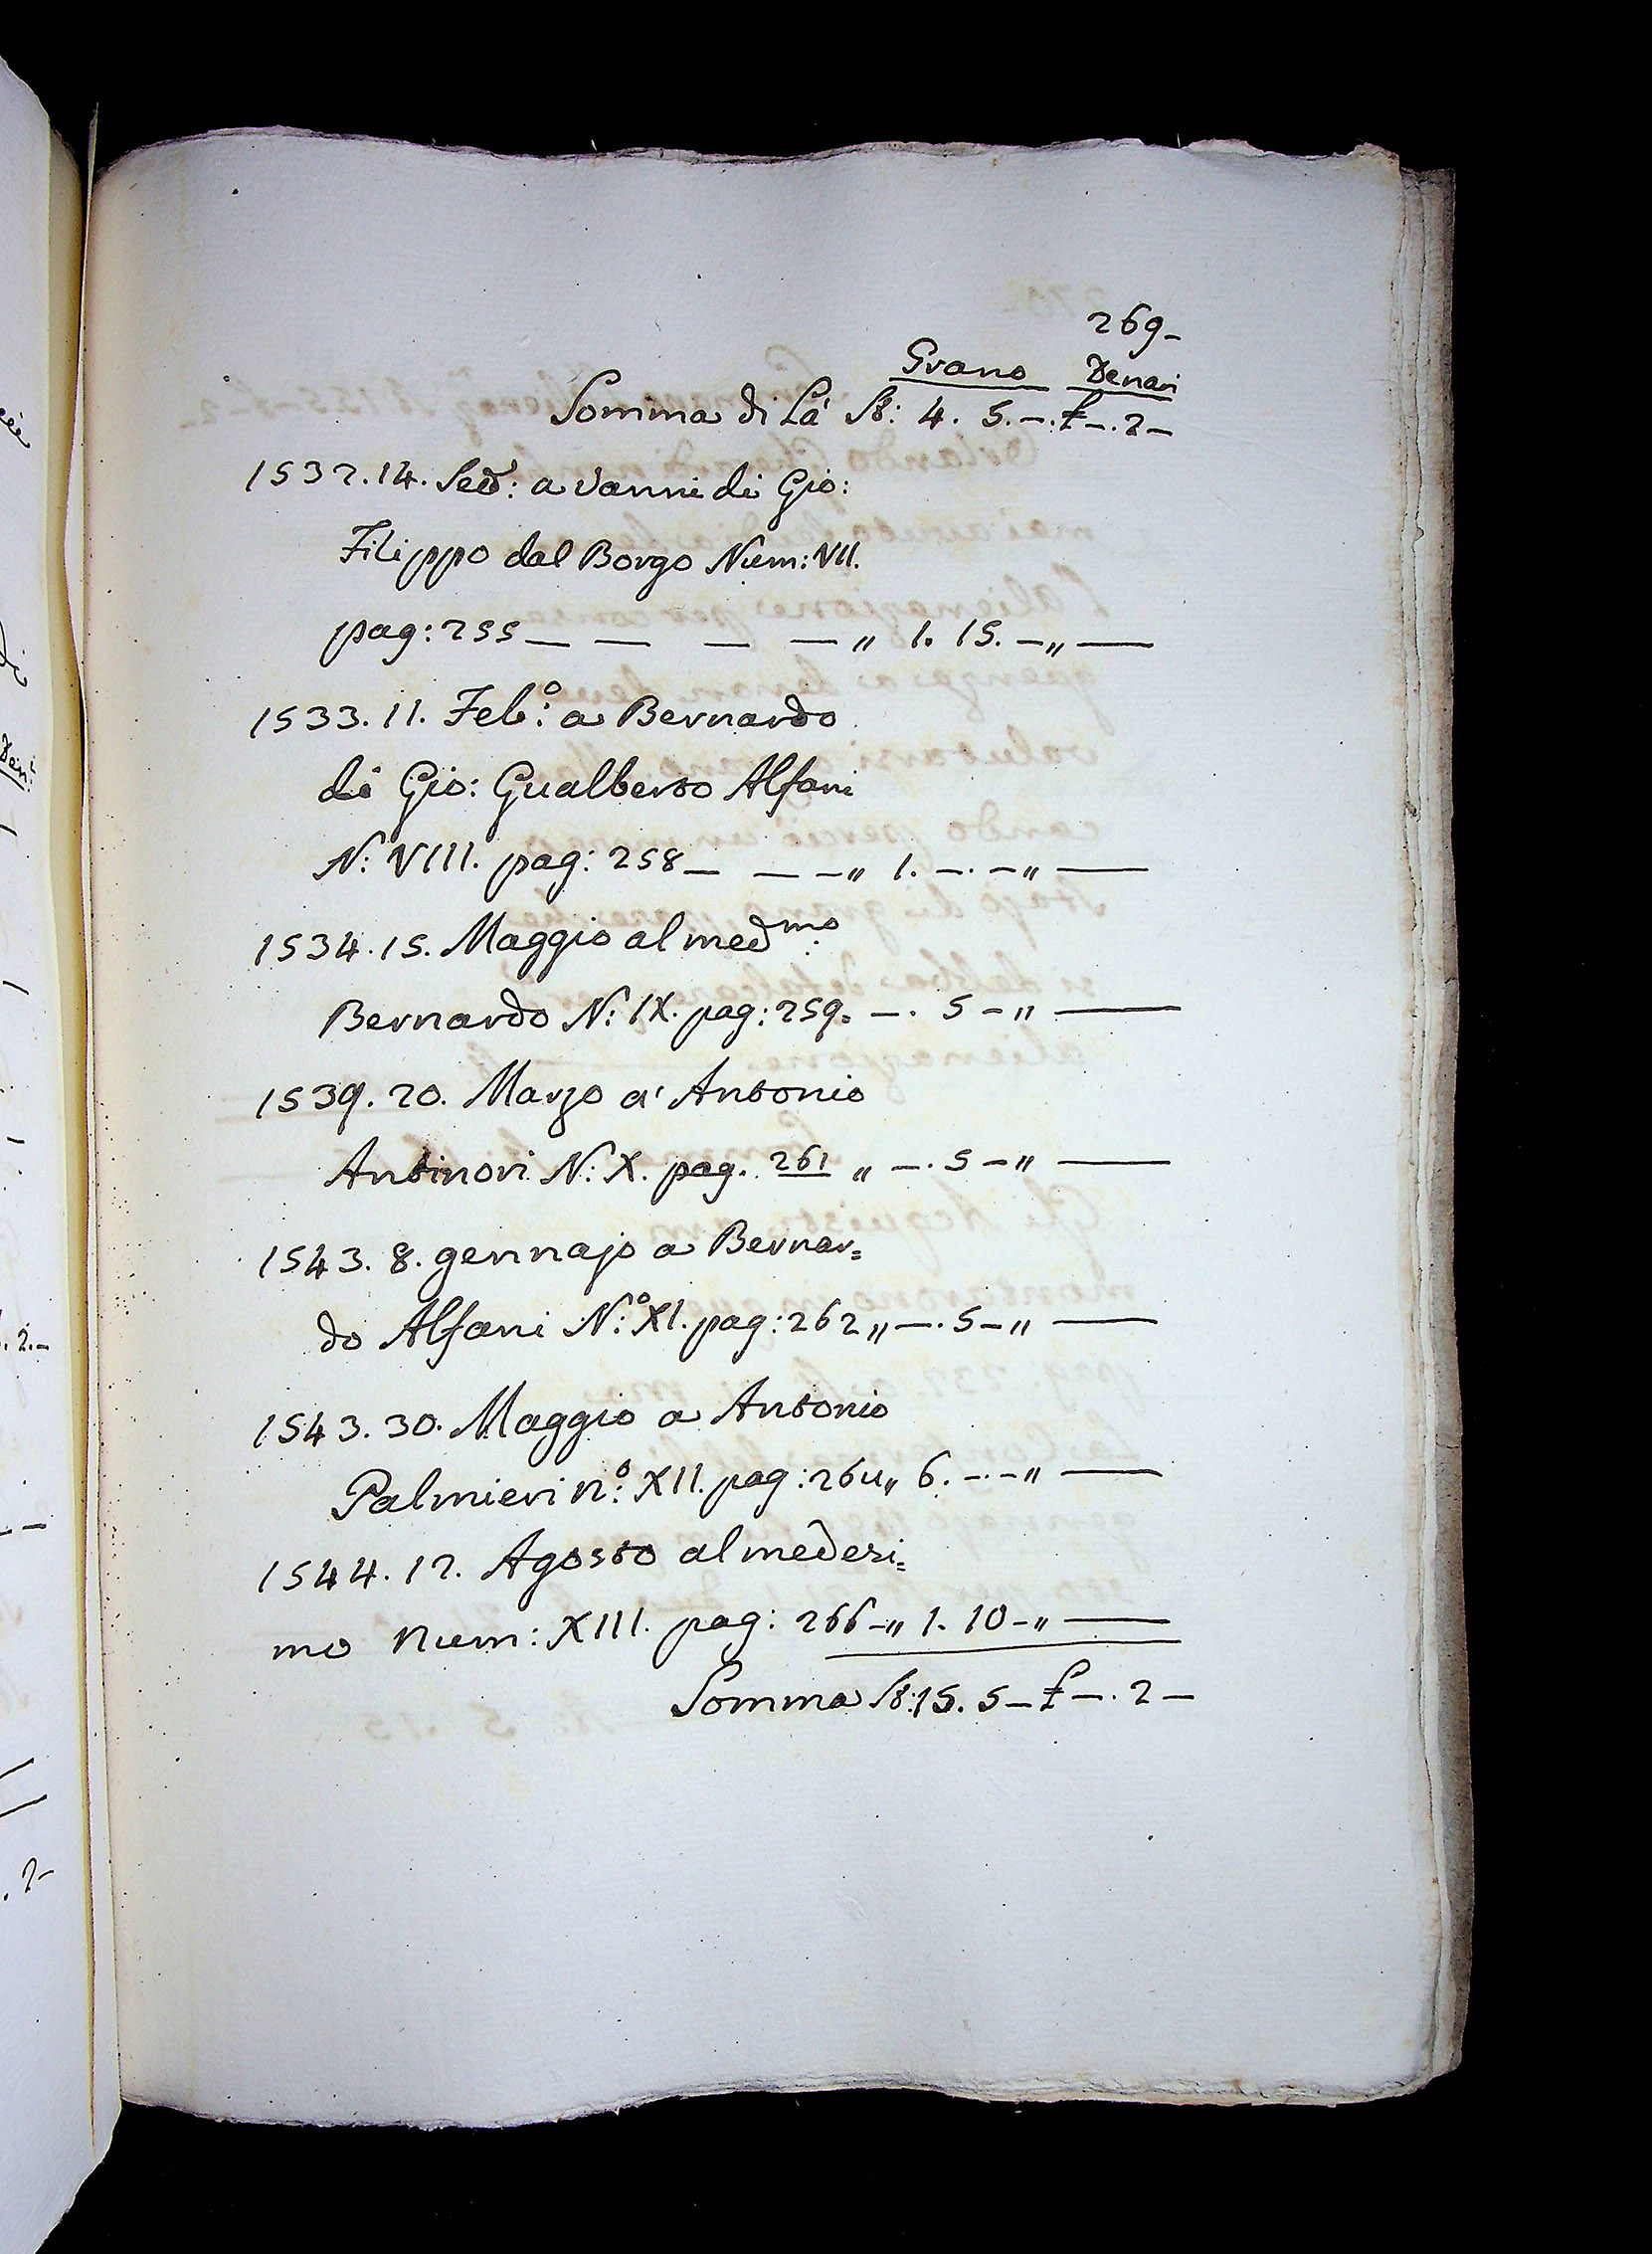 269-
Grano Denari
Somma di Là St: 4. 5. -. £ -. 2 -
1532. 14. Sed: a Vanni di Gio:
Filippo dal Borgo Num: VII.
pag: 255 — — — — „ 1. 15. - „ —
1533. 11. Feb:o a Bernardo
di Gio: Gualberto Alfani
N: VIII. pag: 258 — — - „ 1. -. - „ —
1534. 15. Maggio al med:mo
Bernardo N: IX. pag: 259. -. 5 - „ —
1539. 20. Marzo a' Antonio
Antinori N: X. pag. 261 „ -. 5 - „ —
1543. 8. gennajo a Bernar=
do Alfani N:o XI. pag: 262 „ -. 5 - „ —
1543. 30. Maggio a Antonio
Palmieri n:o XII. pag: 264 „ 6. -. - „ —
1544. 12. Agosto al medesi=
mo Num: XIII. pag: 266 - „ 1. 10 - „ —
Somma St: 15. 5 - £ -. 2 -